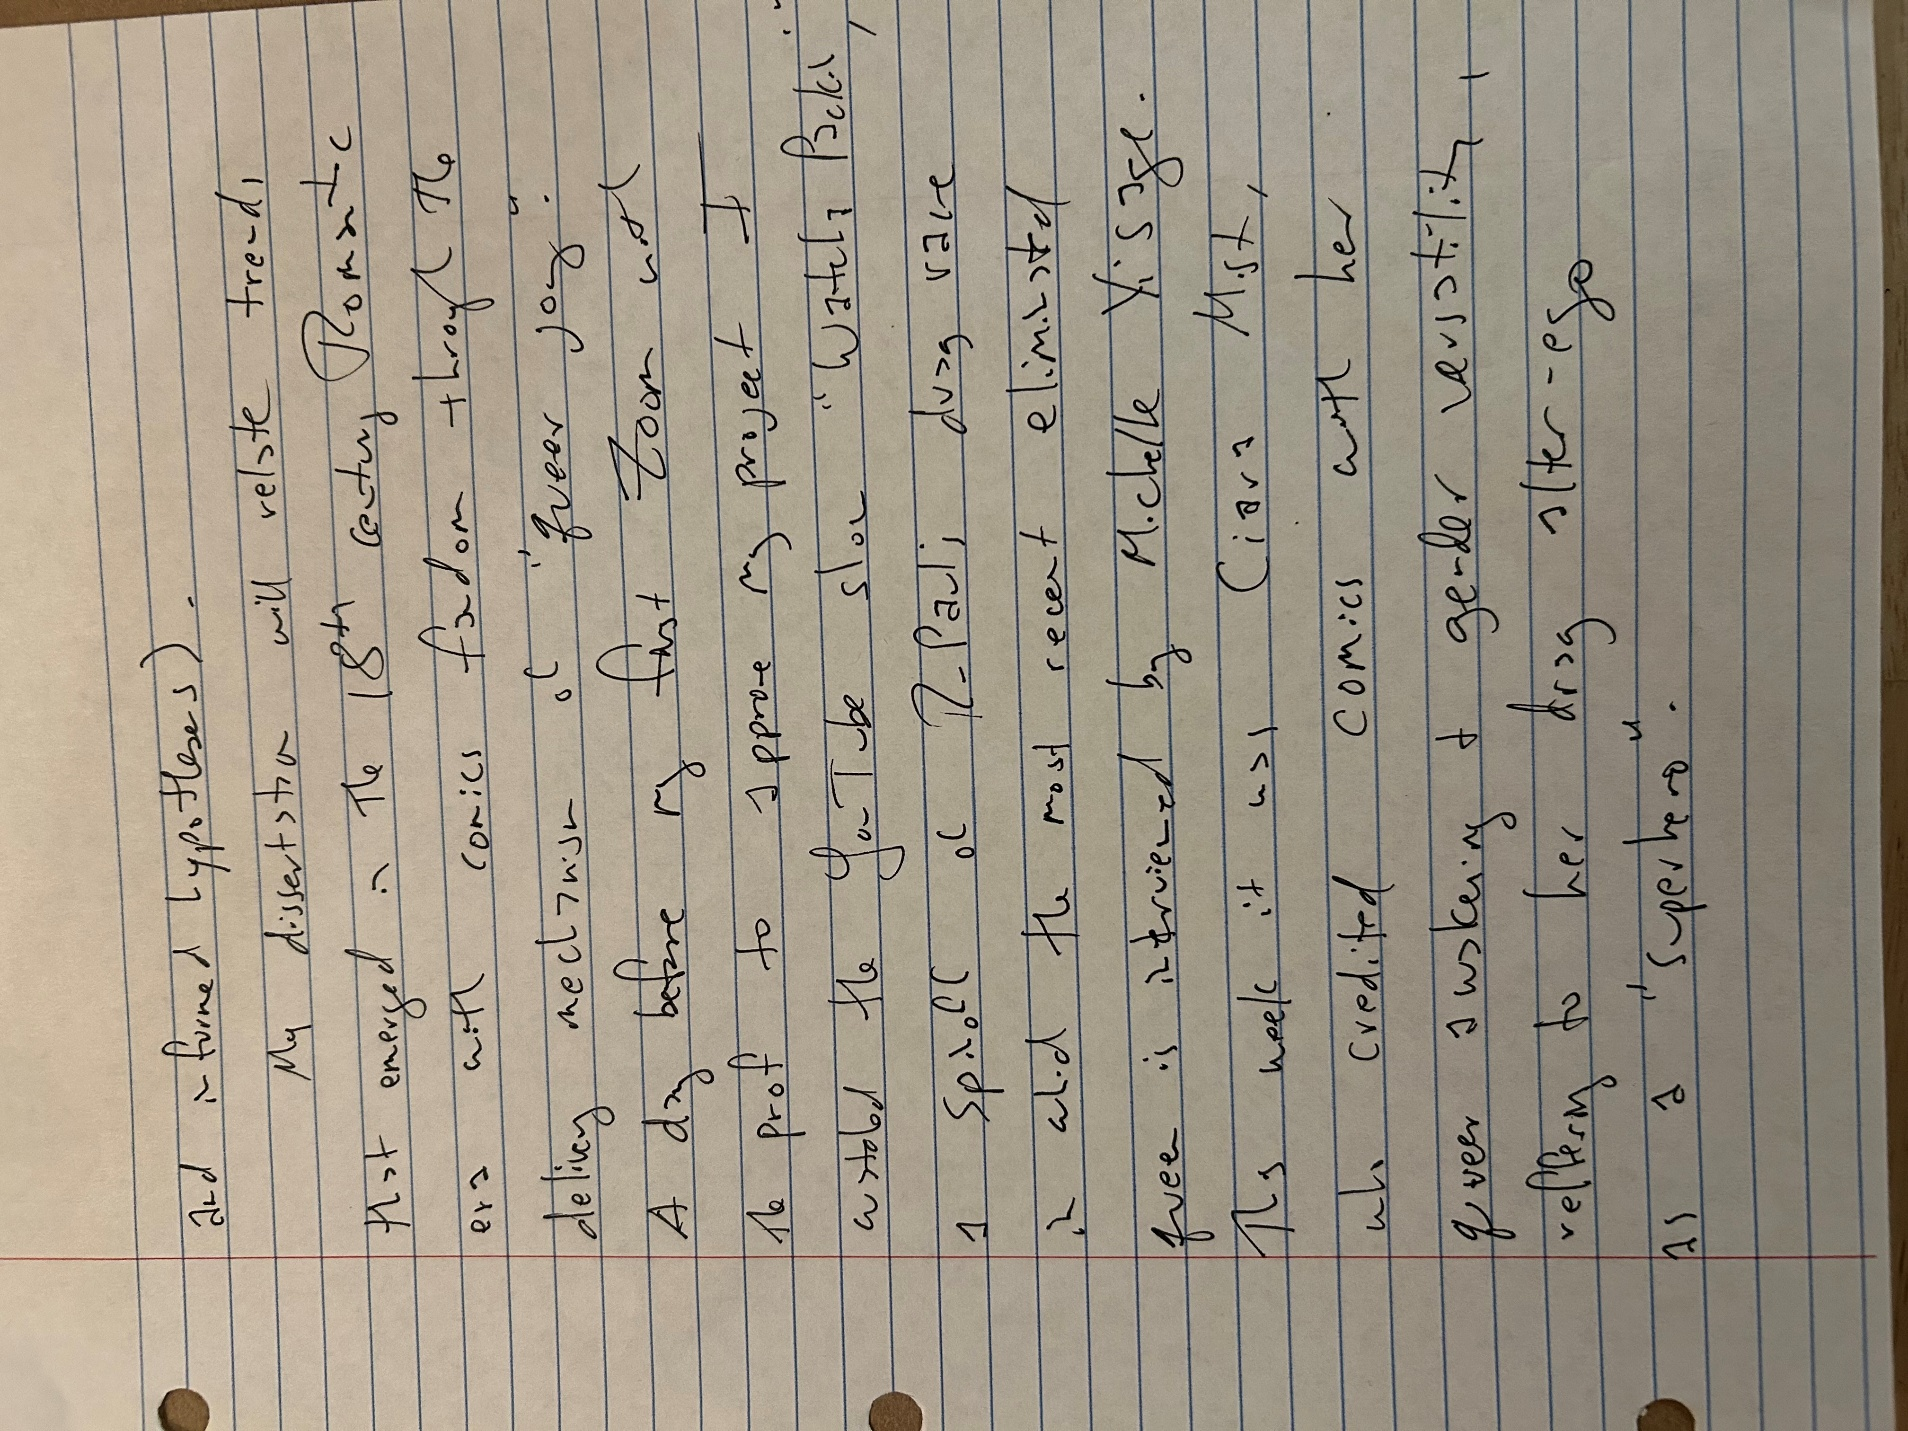 and informed hypotheses).
My dissertation will relate trends
that emerged in the 18th century Romantic
era with comics fandom through the
delivery mechanism of "queer joy".
A day before my first Zoom with
the prof to approve my project I
watched the YouTube show "Whatcha Packin'",
a spinoff of R-Paul's drag race
in which the most recent eliminated
queen is interviewed by Michelle Visage.
This week it was Ciara Mist,
who credited comics with her
queer awakening & gender versatility,
reffering to her drag alter-ego
as a "superhero".